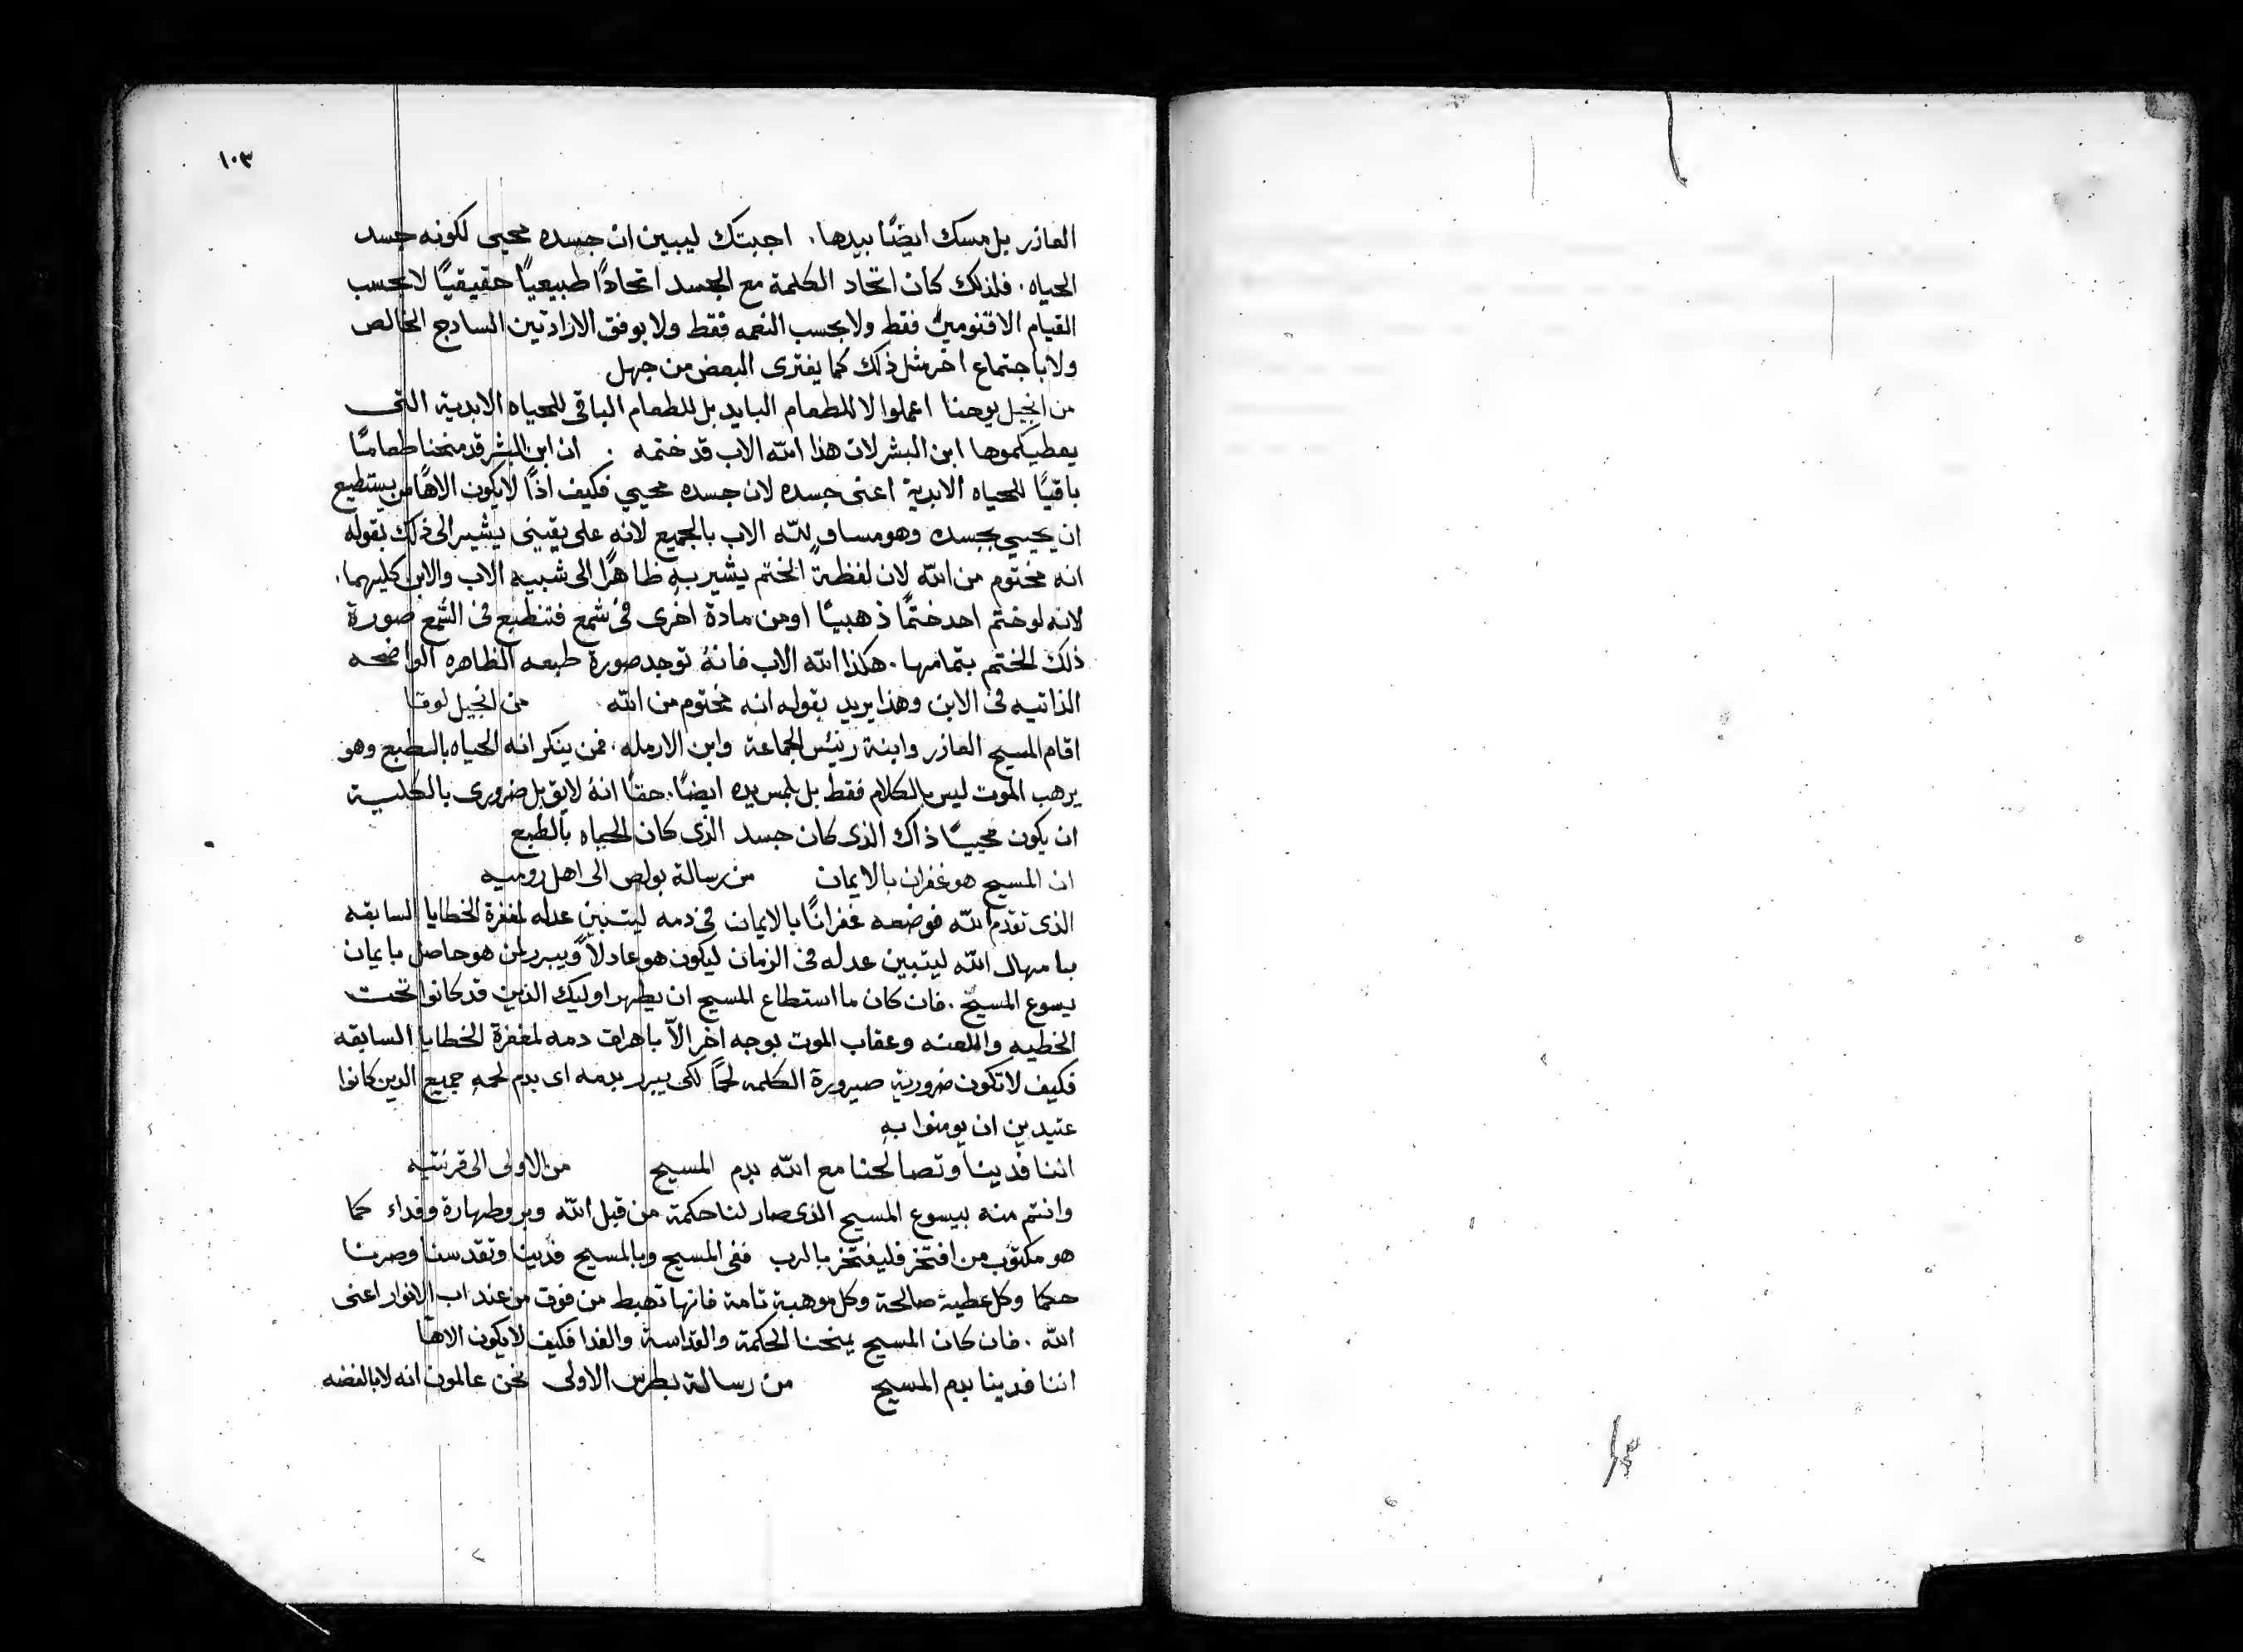 ١٠٣
العازر بل مسك ايضًا بيدها. اجبتك ليبين ان جسده محيى لكونه جسد
الحياه. فلذلك كان اتحاد الكلمة مع الجسد اتحادًا طبيعيًا حقيقيًا لا بحسب
القيام الاقنومى فقط ولا بحسب النعمه فقط ولا بوفق الارادتين السادج الخالص
ولا باجتماع اخر مثل ذلك كما يفترى البعض من جهل
من انجيل يوحنا اعملوا لا للطعام البايد بل للطعام الباقى للحياه الابدية التى
يعطيكموها ابن البشر لان هذا الله الاب قد ختمه . ان ابن البشر قد منحنا طعامًا
باقيًا للحياه الابدية اعنى جسده لان جسده محيي فكيف اذًا لا يكون الاهًا من يستطيع
ان يحيي بجسده وهو مساوٍ لله الاب بالجميع لانه على يقينى يشير الى ذلك بقوله
انه مختوم من الله لان لفظة الختم يشير به ظاهرًا الى شبيه الاب والابن كليهما.
لانه لو ختم احد ختمًا ذهبيًا او من مادة اخرى فى شمع فتنطبع فى الشمع صورة
ذلك الختم بتمامها. هكذا الله الاب فانهُ توجد صورة طبعه الظاهره الواضحه
الذاتيه فى الابن وهذا يريد بقوله انه مختوم من الله من انجيل لوقا
اقام المسيح العازر وابنة رئيس الجماعة وابن الارمله. فمن ينكر انه الحياه بالطبع وهو
يرهب الموت ليس بالكلام فقط بل بلمس يده ايضًا. حقًا انهُ لايق بل ضرورى بالكلية
ان يكون محييًا ذاك الذى كان جسد الذى كان الحياه بالطبع
ان المسيح هو غفران بالايمان من رسالة بولص الى اهل روميه
الذى تقدم الله فوضعه غفرانًا بالايمان فى دمه ليتبين عدله لمغفرة الخطايا السابقه
بامهال الله ليتبين عدله فى الزمان ليكون هو عادلاً ويبرر لمن هو حاصل بايمان
يسوع المسيح. فان كان ما استطاع المسيح ان يطهر اوليك الذين قد كانوا تحت
الخطيه واللعنه وعقاب الموت بوجه اخر الاّ باهراق دمه لمغفرة الخطايا السابقه
فكيف لا تكون ضرورية صيرورة الكلمه لحمًا لكى يبرر بدمه اى بدم لحمهِ جميع الدين كانوا
عتيدين ان يومنوا بهِ
اننا فدينا وتصالحنا مع الله بدم المسيح من الاولى الى قرنتيه
وانتم منه بيسوع المسيح الذى صار لنا حكمة من قبل الله وبر وطهارة وفداء كما
هو مكتوب من افتخر فليفتخر بالرب ففى المسيح وبالمسيح فدينا وتقدسنا وصرنا
حكما وكل عطية صالحة وكل موهبة تامة فانها تهبط من فوق من عند اب الانوار اعنى
الله. فان كان المسيح يمنحنا الحكمة والقداسة والفدا فكيف لا يكون الاهًا
اننا فدينا بدم المسيح من رسالة بطرس الاولى نحن عالمون انه لا بالفضه